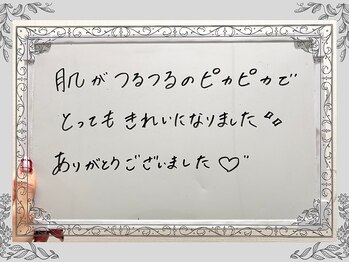 肌がつるつるのピカピカで
とってもきれいになりました
ありがとうございました♡